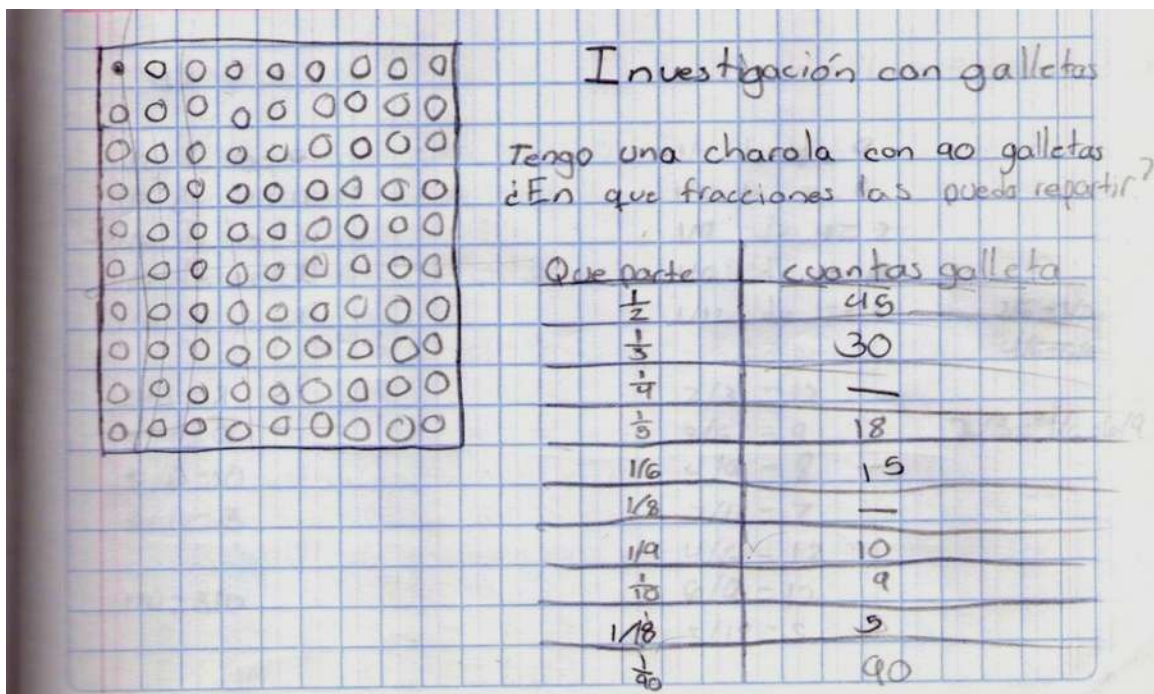 Investigación con galletas
Tengo una charola con 90 galletas
¿En que fracciones las puedo repartir?
Que parte cuantas galleta
1/2 45
1/3 30
1/4 —
1/5 18
1/6 15
1/8 —
1/9 10
1/10 9
1/18 5
1/90 90